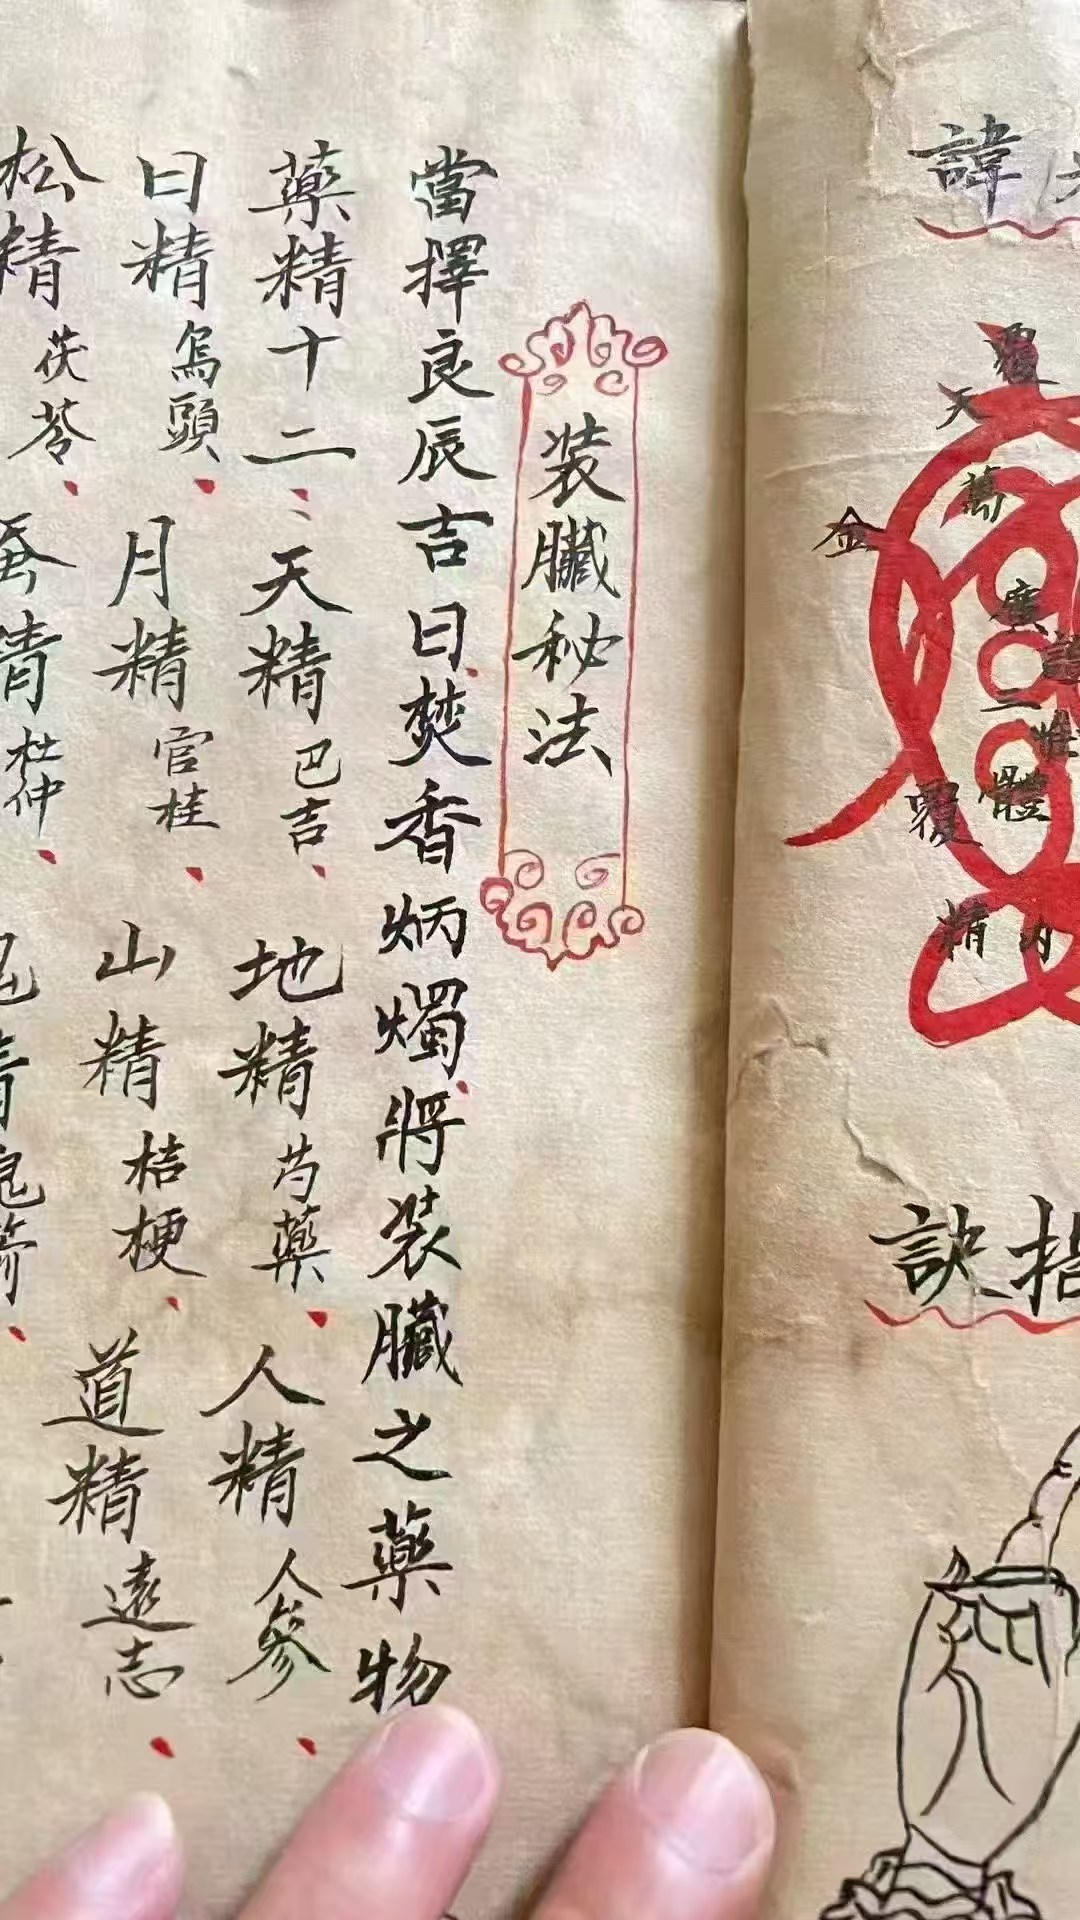 諱
覆
天
萬
金
廣
二
體
覆
精內
訣指
装臟秘法
當擇良辰吉日焚香炳燭將装臟之藥物
藥精十二天精巴吉地精芍藥人精人參
日精烏頭月精官桂山精桔梗道精遠志
松精茯苓精杜仲精鬼箭